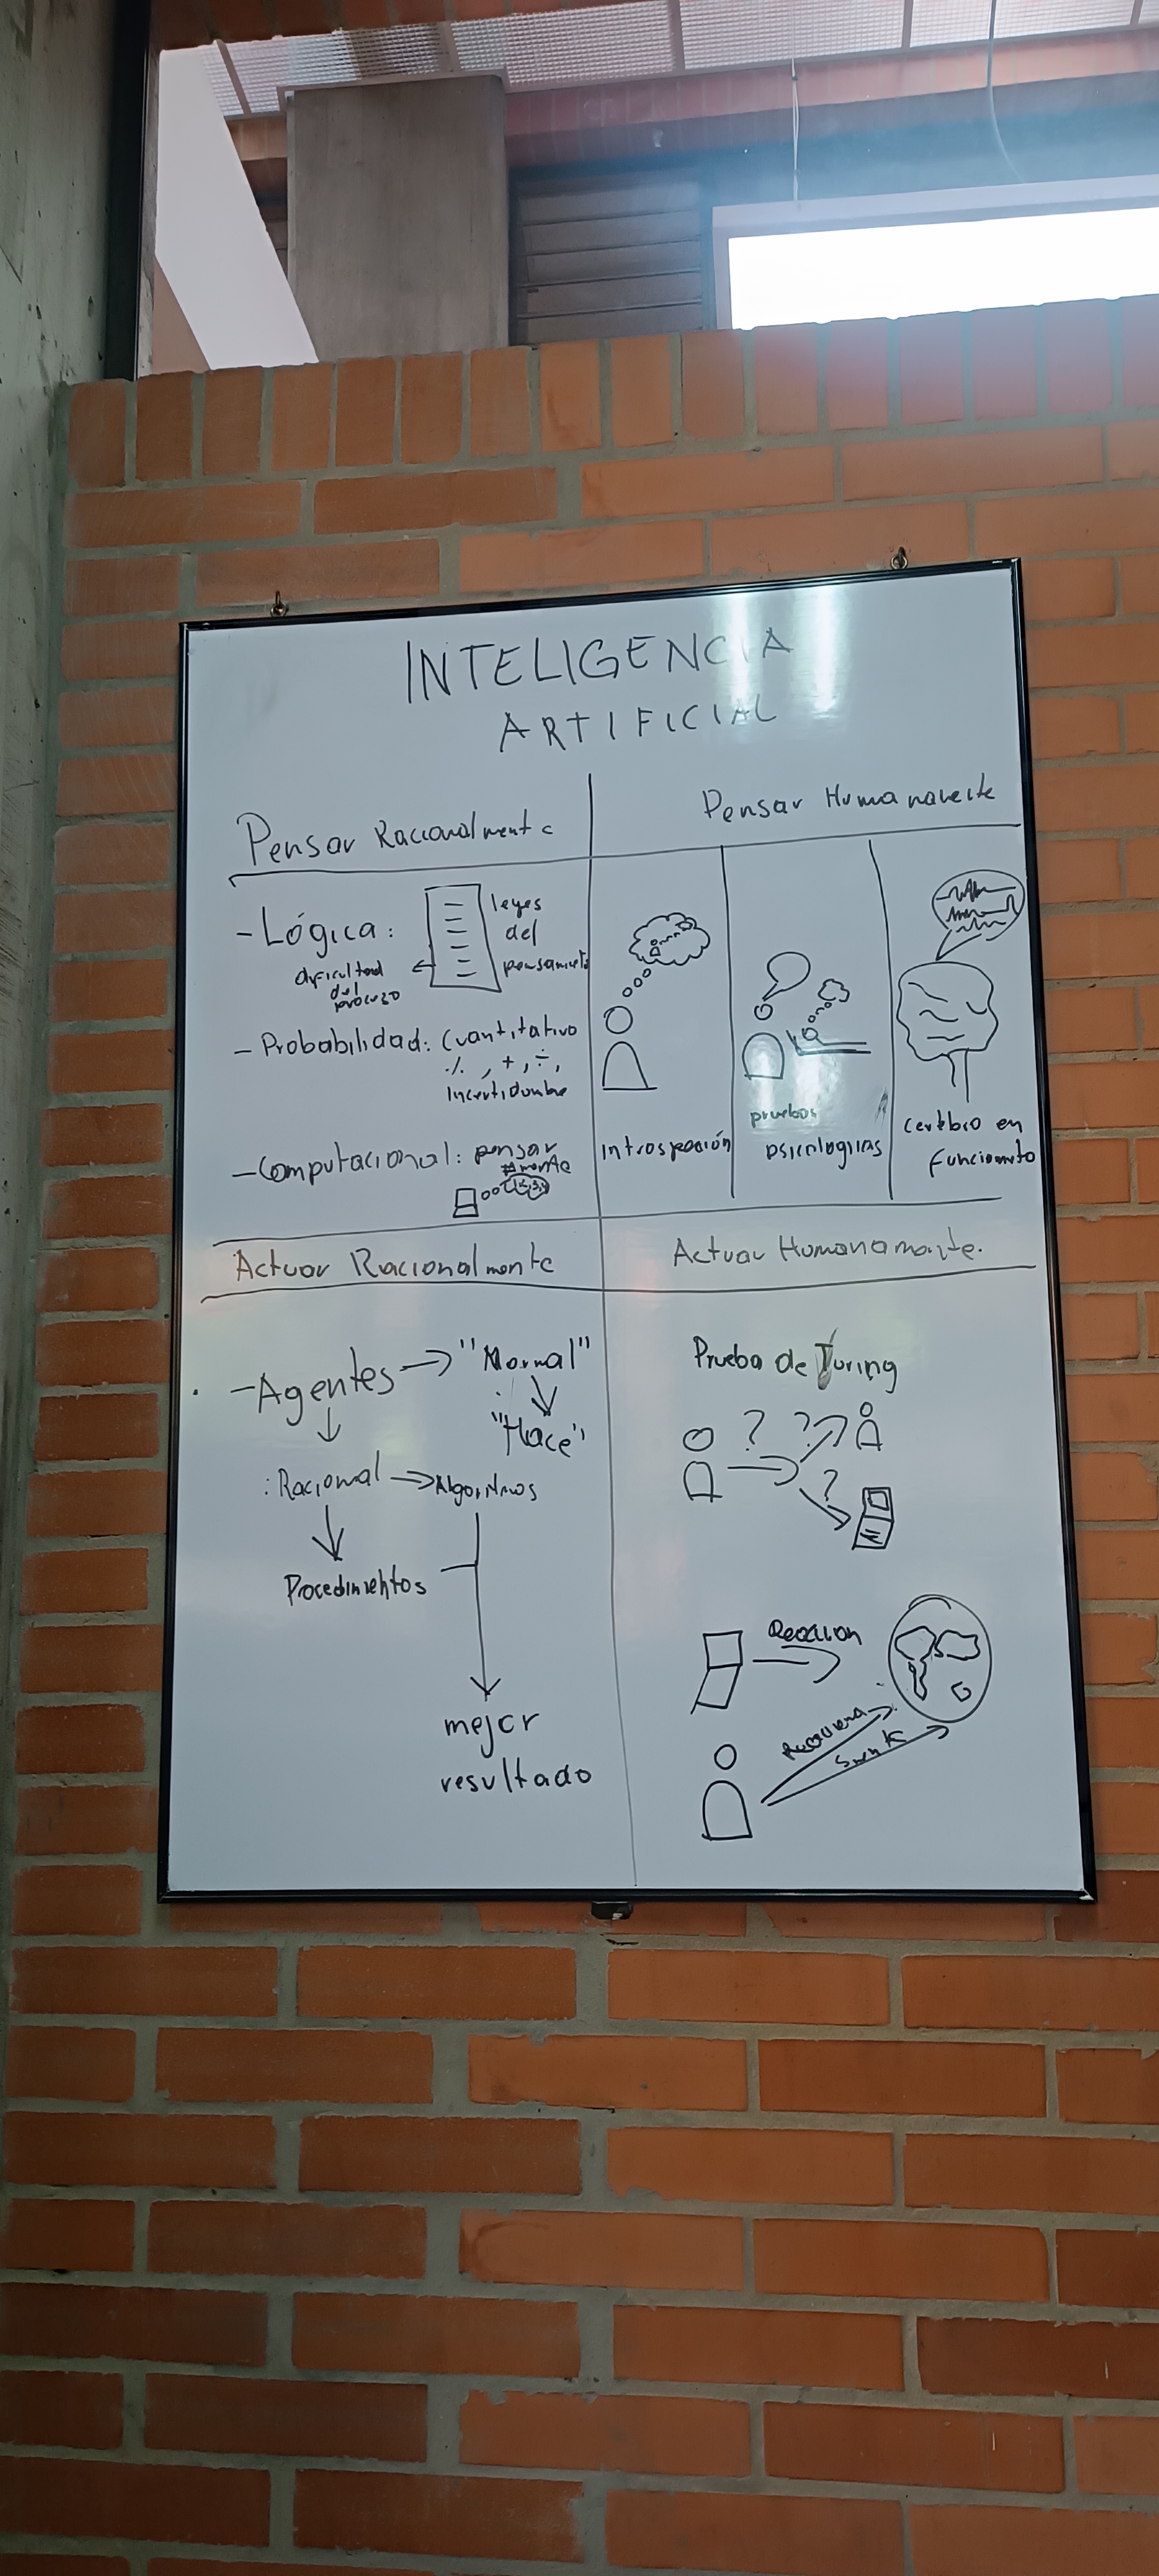 INTELIGENCIA
ARTIFICIAL
Pensar Racionalmente
- Lógica:
leyes
del
pensamiento
dificultad
del
proceso
- Probabilidad: Cuantitativo
%, +, ÷,
Incertidumbre
- Computacional: pensar
Pensar Humanamente
Introspección
pruebas
psicologicas
Cerebro en
funcionamto
Actuar Racionalmente
- Agentes → "Normal"
"Hace"
: Racional → Algoritmos
Procedimientos
mejor
resultado
Actuar Humanamente.
Prueba de Turing
? ? ?
Reacción
Reacciona
Siente